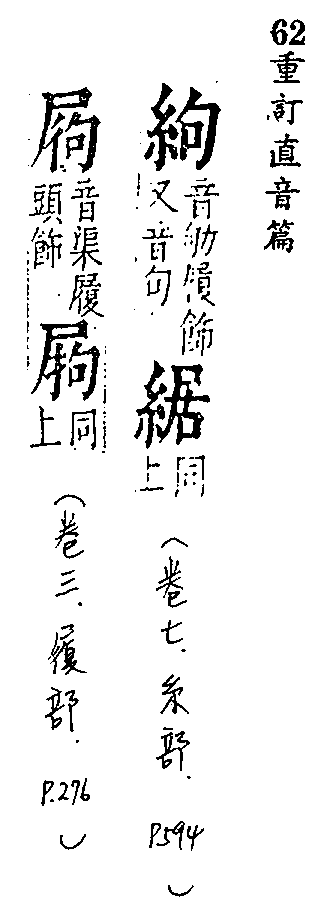 62重訂直音篇
絇音劬履飾又音句䋧同上(卷七.糸部.P.594)
音渠履頭飾同上(卷三.履部.P.276)